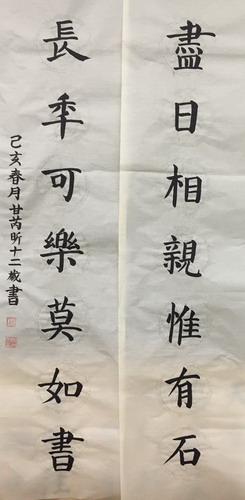 盡日相親惟有石
長年可樂莫如書
己亥春月甘芮昕十二歲書